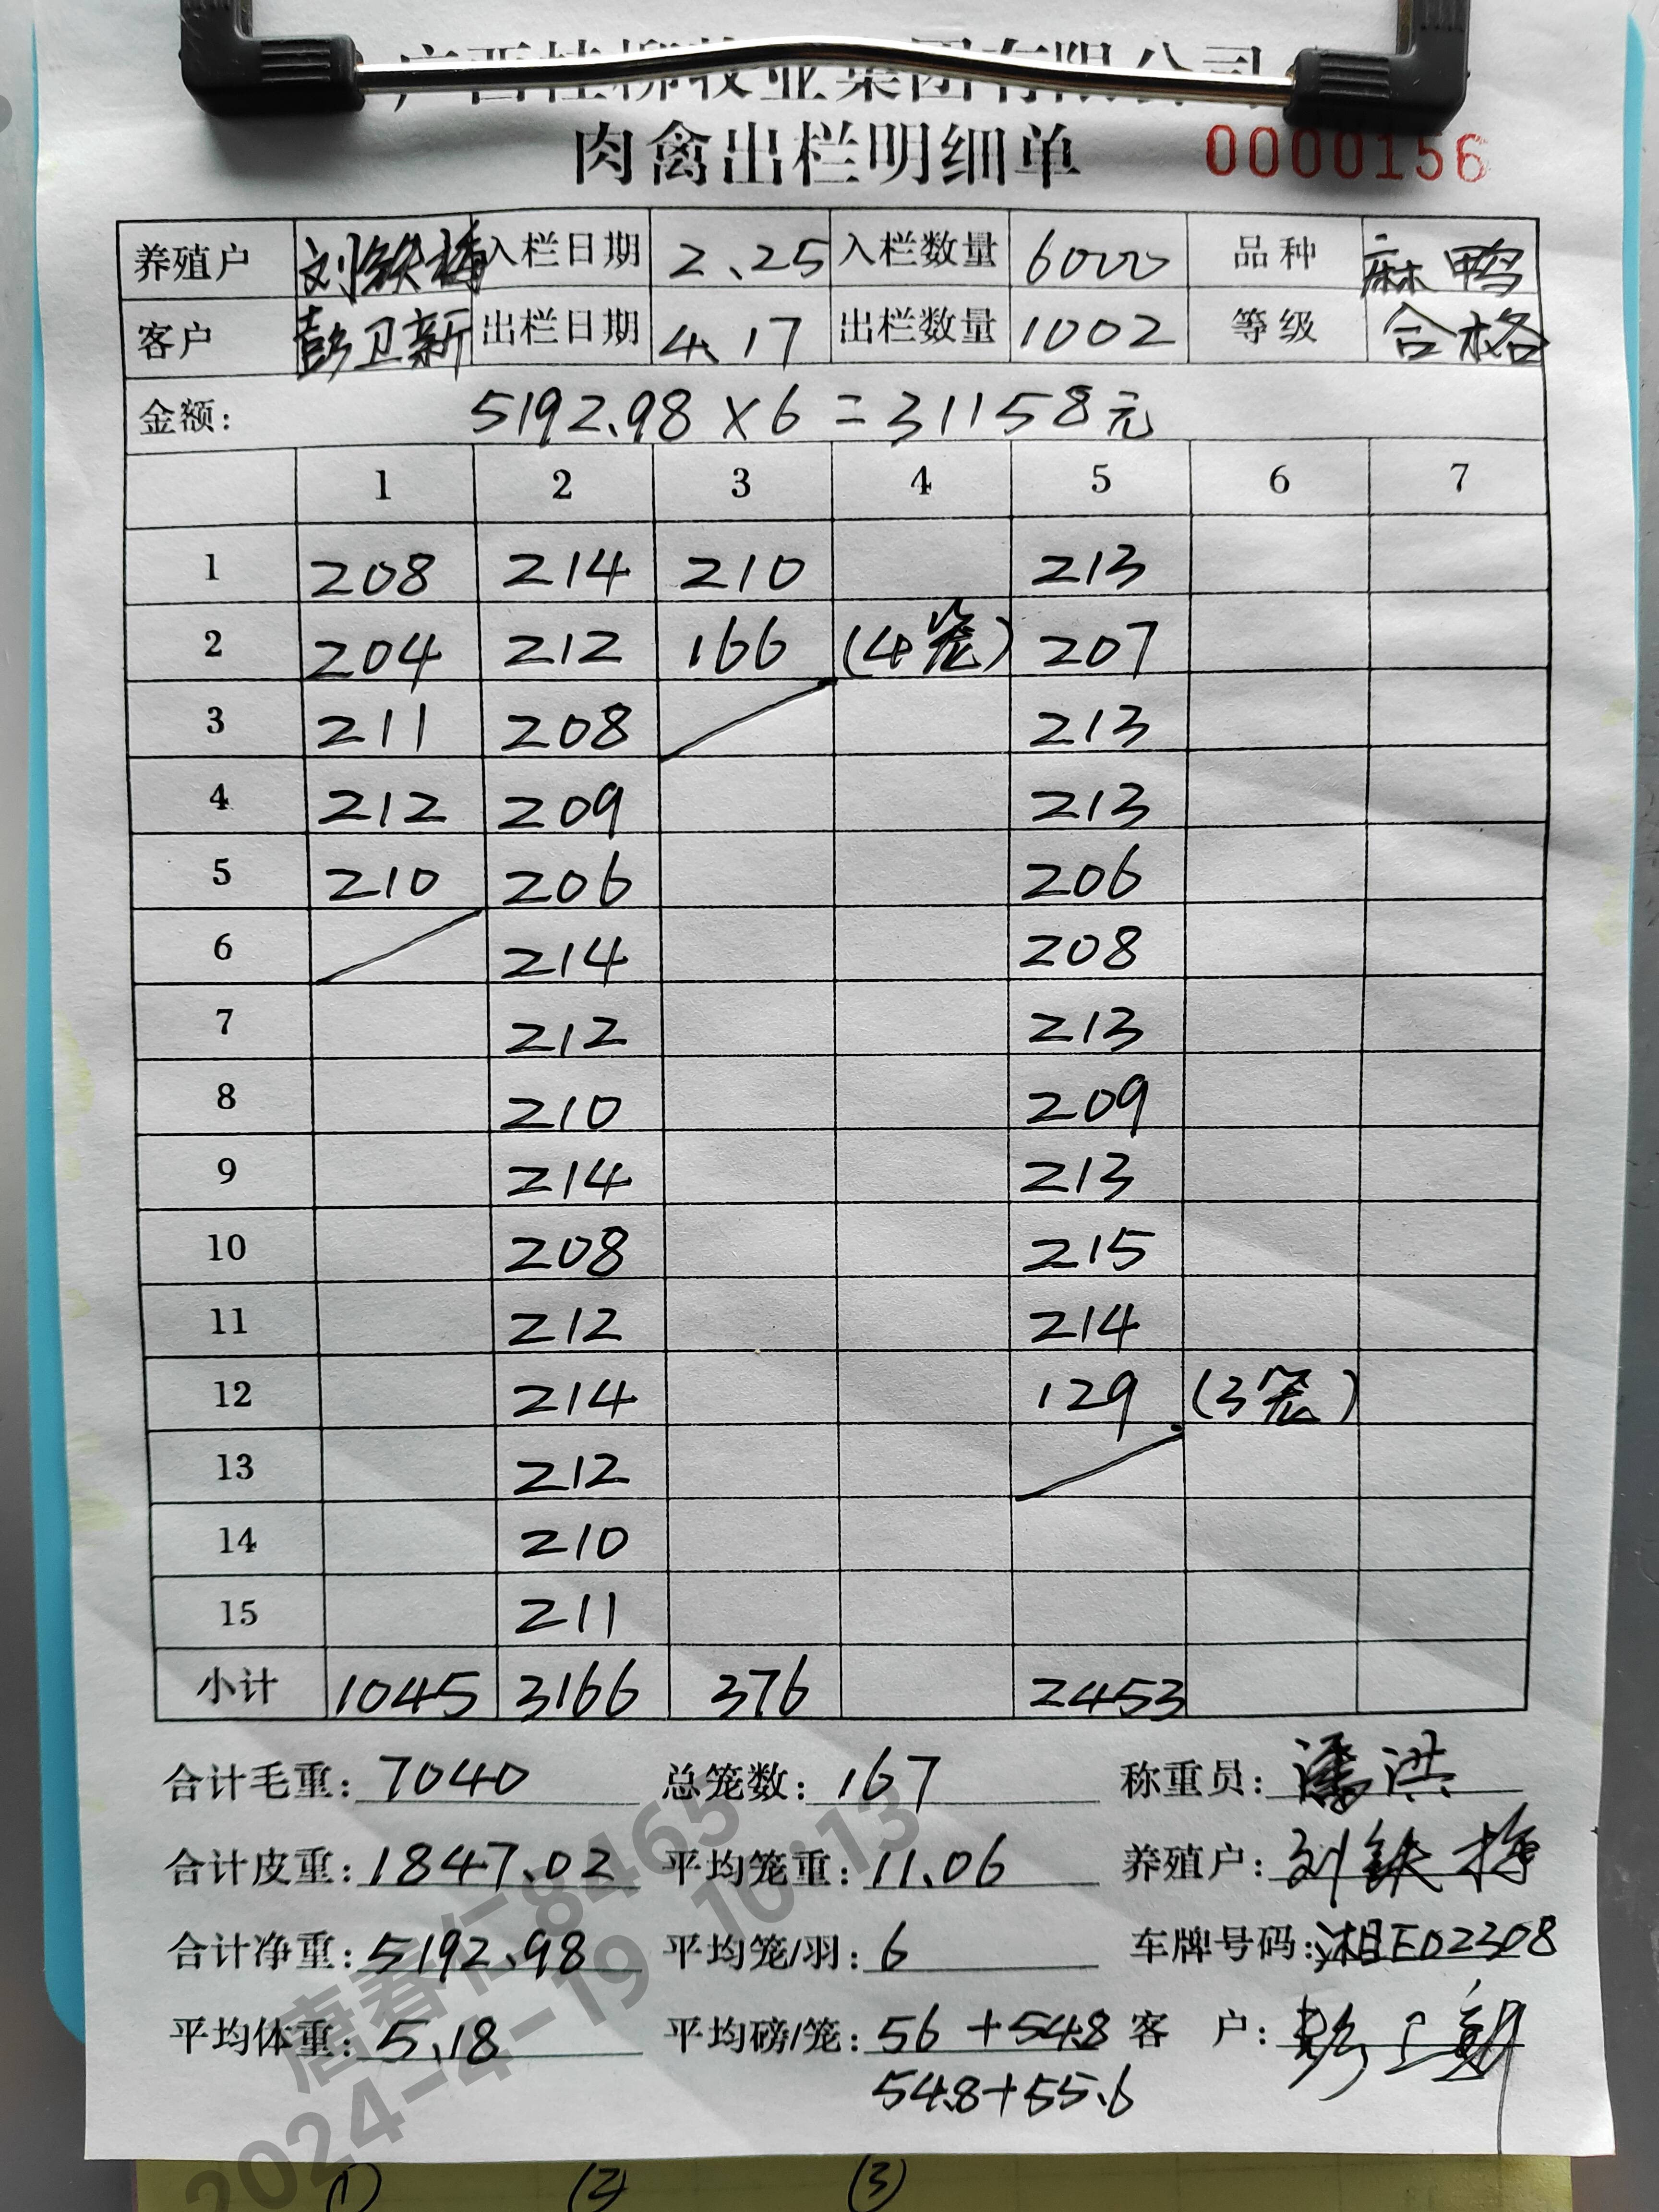 广西桂柳牧业集团有限公司
肉禽出栏明细单 0000156
养殖户 刘铁梅 入栏日期 2.25 入栏数量 6000 品种 麻鸭
客户 彭卫新 出栏日期 4.17 出栏数量 1002 等级 合格
金额: 5192.98×6=31158元
1 2 3 4 5 6 7
1 208 214 210 213
2 204 212 166 (4笼) 207
3 211 208 213
4 212 209 213
5 210 206 206
6 214 208
7 212 213
8 210 209
9 214 213
10 208 215
11 212 214
12 214 129 (3笼)
13 212
14 210
15 211
小计 1045 3166 376 2453
合计毛重: 7040 总笼数: 167 称重员: 潘洪
合计皮重: 1847.02 平均笼重: 11.06 养殖户: 刘铁梅
合计净重: 5192.98 平均笼/羽: 6 车牌号码: 湘E02308
平均体重: 5.18 平均磅/笼: 56+54.8 客 户: 彭卫新
54.8+55.6
唐春仁8465
2024-4-19 10:13
(1) (2) (3)